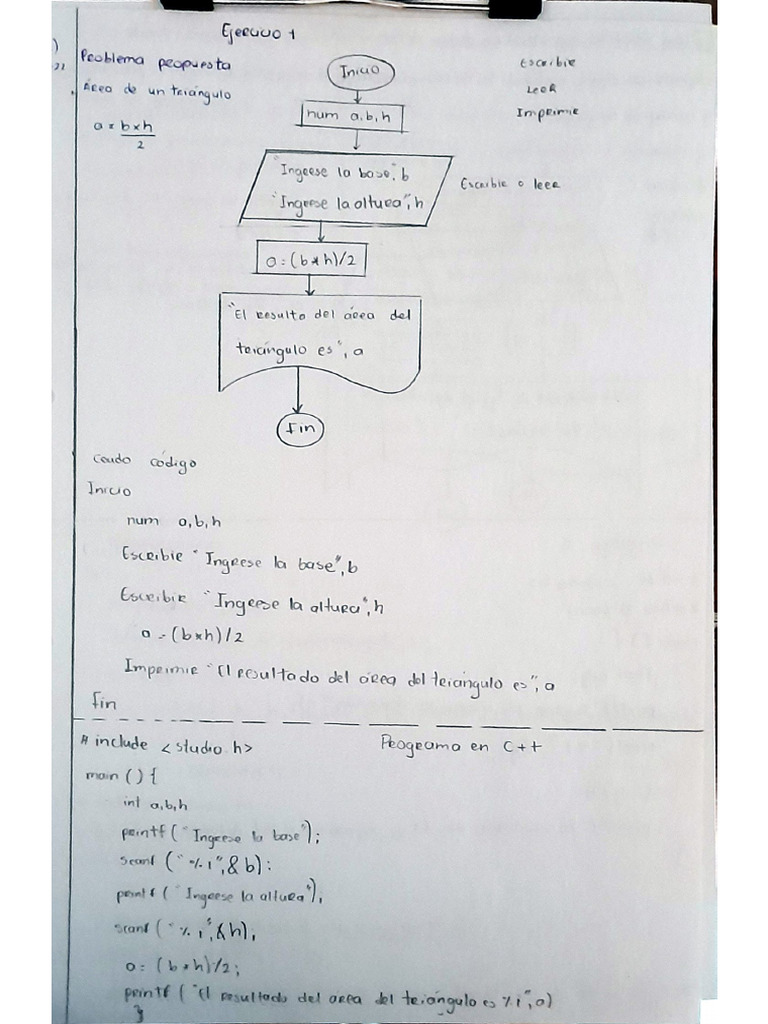 Ejercicio 1
Problema propuesta
Área de un triángulo
a = b×h
2
Inicio
num a, b, h
"Ingrese la base", b
"Ingrese la altura", h
a = (b*h)/2
"El Resulto del área del
triángulo es", a
Fin
Escribir
Leer
Imprimir
Escribir o leer
Ceudo código
Inicio
num a, b, h
Escribir "Ingrese la base", b
Escribir "Ingrese la altura", h
a = (b*h)/2
Imprimir "El resultado del área del triángulo es", a
Fin
# include <studio.h>
Programa en C++
main () {
int a, b, h
printf ("Ingrese la base");
scanf ("%i", & b):
printf ("Ingrese la altura");
scanf ("%i", & h);
a = (b*h)/2;
printf ("El resultado del area del triángulo es %i", a)
}